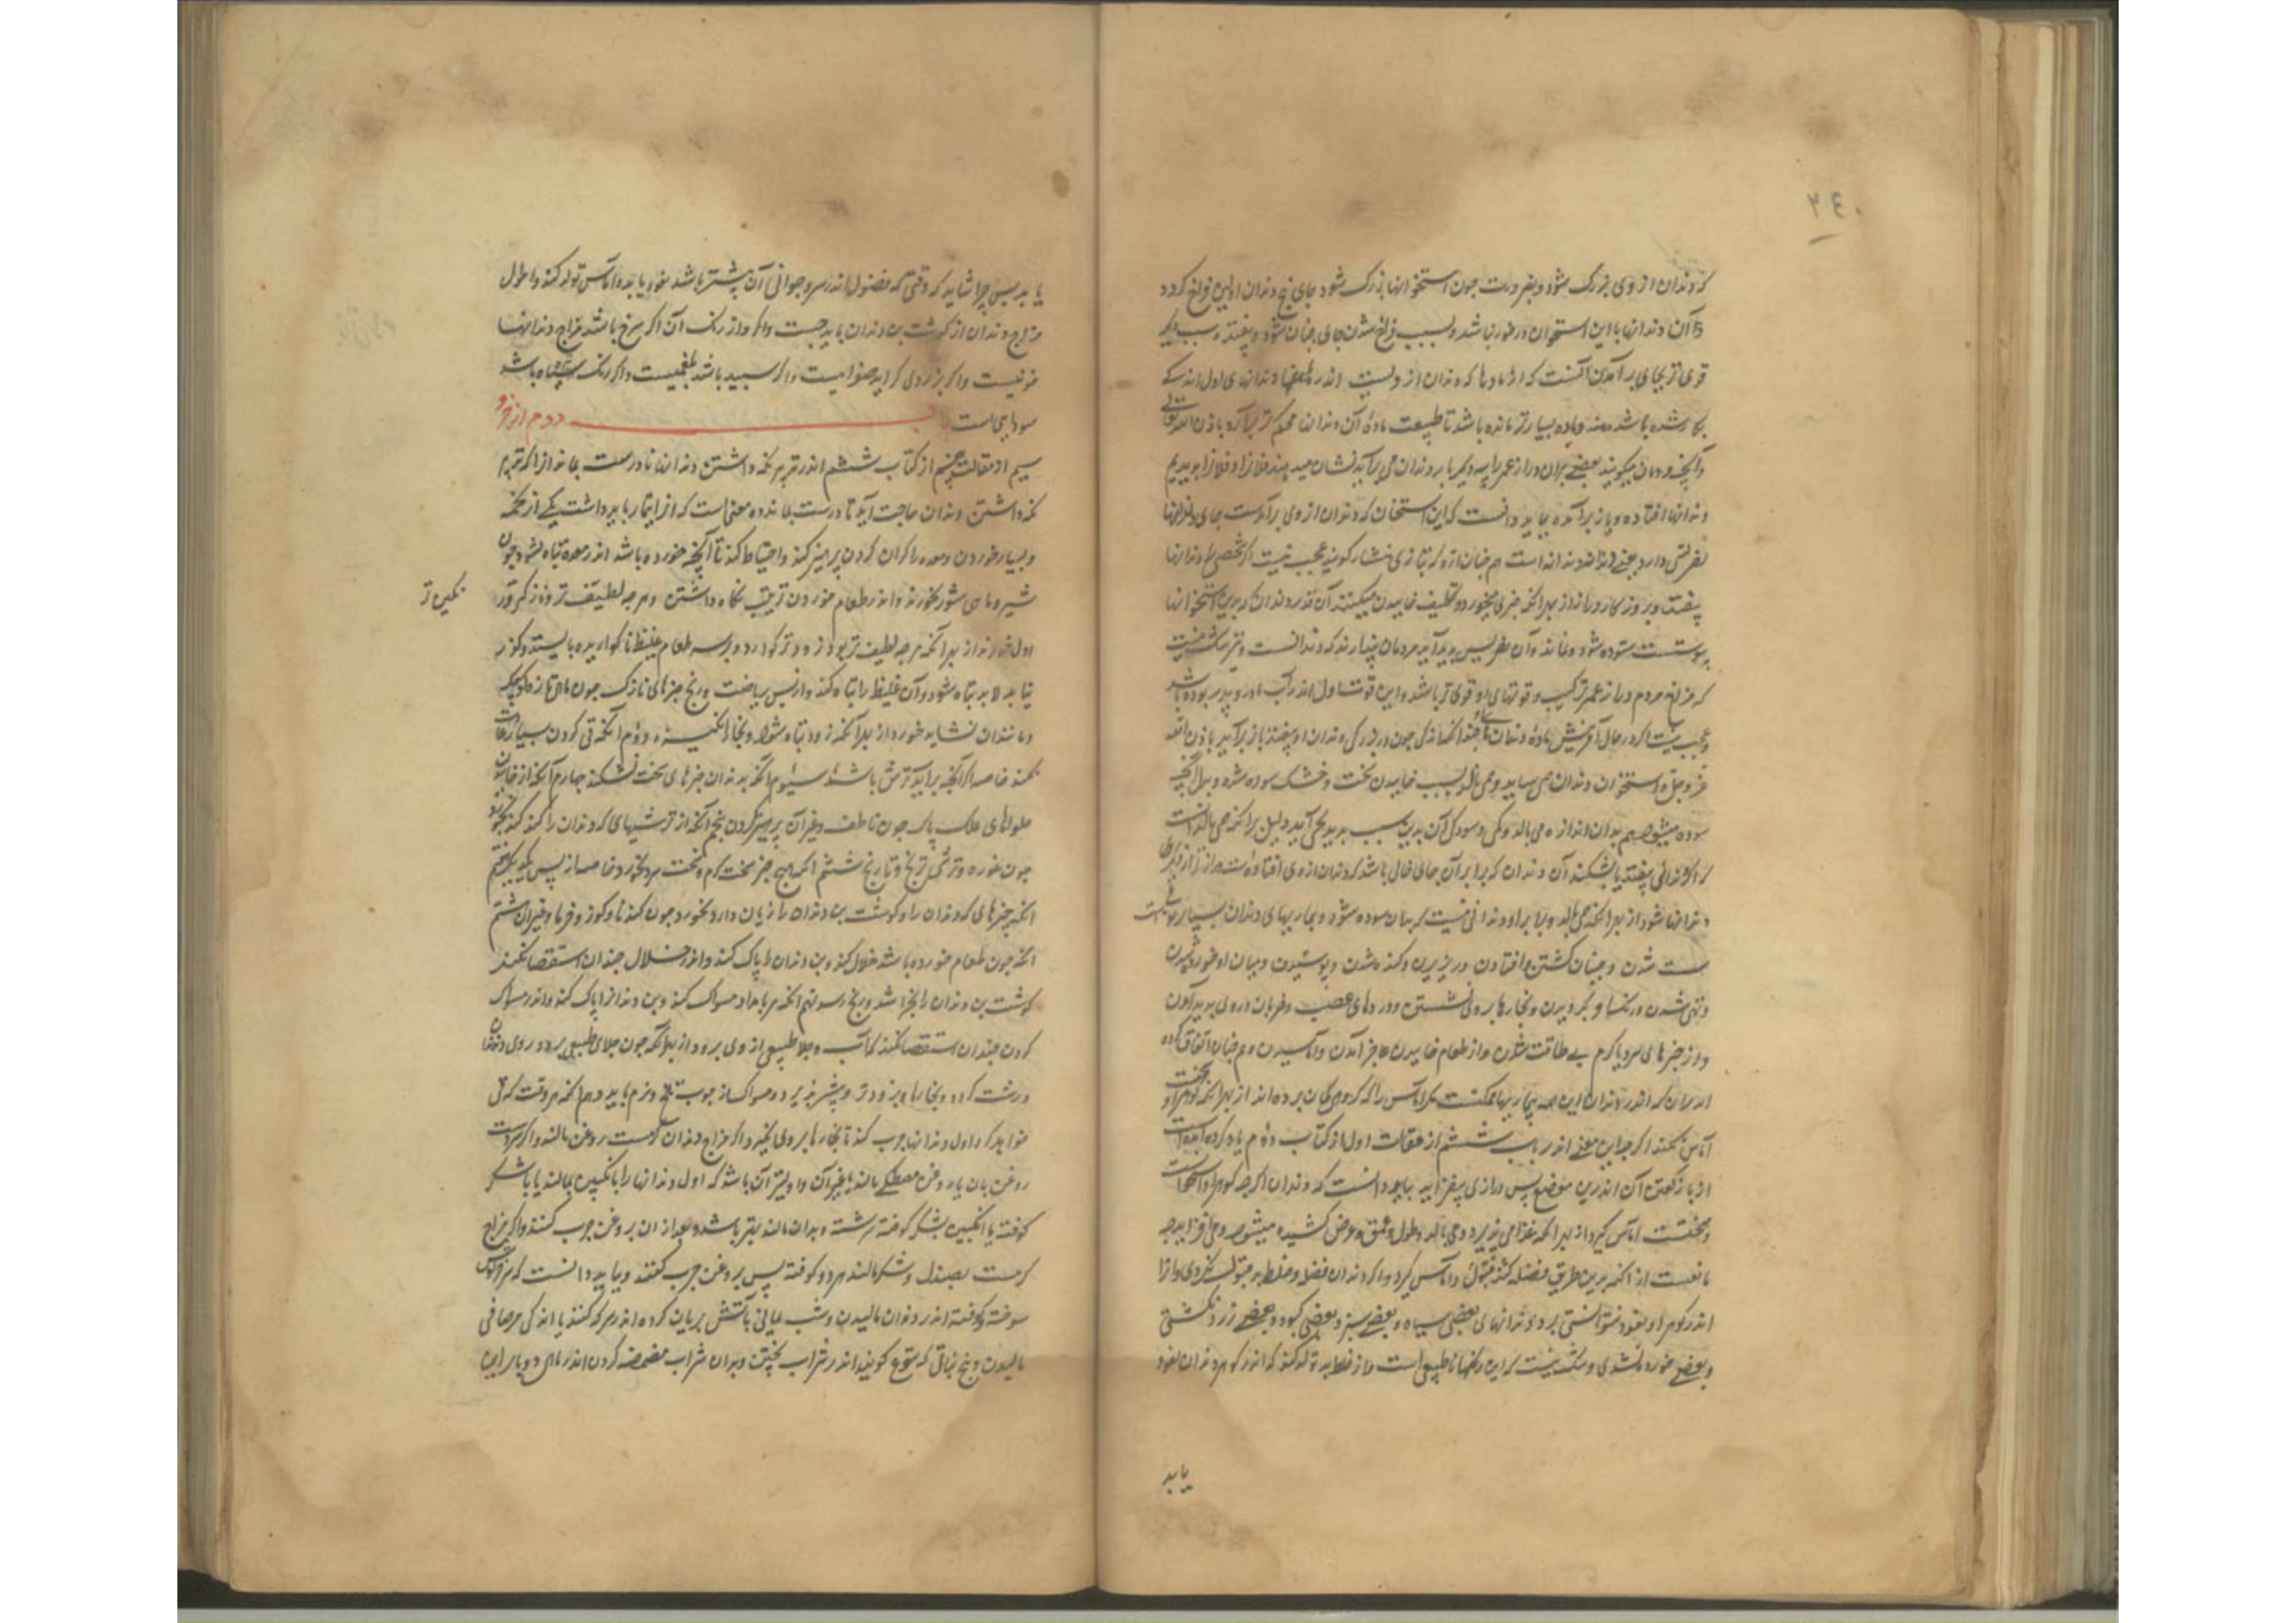 که دندان از وی بزرگ شود و بضرورت چون استخوانها بزرگ شود جای بیخ دندان اولین فراخ کردد
آن دندانها با این استخوان درخور نباشد و بسبب فراخ شدن جای جنبان شود و بیفتد و سبب دیگر
قوی تر بجای بر آمدن آنست که از مادها که دندان از ویست اندر دندانهای اول اندکی
بکار شده باشد و ماده بسیار تر مانده باشد تا طبیعت مادۀ آن دندانها محکم تر برآرد باذن الله تعالی
و آنچه مردمان میکویند بعضی پیران دراز عمر را دیگر بار دندان می برآید نشان میدهند فلانرا و فلانرا دیدیم
دندانها افتاده و باز برآمده بباید دانست که این استخوان که دندان از وی برآمدست بجای دندانها
است هم چنان اره که بتازی منشار کویند عجب نیست اگر شخصی را دندانها
بیفتد و بروز کار دراز از بهر آنکه چیزی میخورد و تکلیف خاییدن میکنند آن قدر دندان که بدین استخوانها
پیوستست سوده شود و نماند و آن تضریس پدید آید مردمان پندارند که دندانست و نیز شک نیست
که مزاج مردم دراز عمر و ترکیب و قوتهای او قوی تر باشد و این قوت اول اندر آب مادر و پدر بوده باشد
و عجب نیست اگر در حال آفرینش مادۀ دندان چندانکه چون در بزرگی دندان او بیفتد باز برآید باذن الله
عز و جل و استخوان دندان می ساید و می بالد بسبب خاییدن سخت و خشک سوده شود و بدل آنچه
سوده میشود هم بدان اندازه می بالد و کمی و سودگی آن بدین سبب پدید نمی آید دلیل بر آنکه می بالد آنست
که اگر دندانی بیفتد یا بشکند آن دندان که برابر آن جای خالی باشد که دندان از وی افتاده است دراز تر از دیگر
دندانها شود از بهر آنکه می بالد و برابر او دندانی نیست که بدان سوده شود و بیماریهای دندان بسیارست
سست شدن و جنبان کشتن و افتادن و ریزیدن و کنده شدن و پوسیدن و میان او خورده شدن
و تهی شدن و رنکها و بکردیدن و بخارها بروی نشستن و دردهای عصب و ضربان در وی پدید آمدن
و از چیزهای سرد یا گرم بی طاقت شدن و از طعام خاییدن عاجز آمدن و آماسیدن و هم چنان اتفاق کرده
اند بران که اندر دندان این همه بیماریها ممکنست مکر آماس را که کروهی گمان برده اند از بهر آنکه کوهر او سختست
آماس نکند اگر چه این معنی اندر باب ششم از مقالت اول از کتاب دوم یاد کرده آمده است
از باز گفتن آن اندرین موضع بس درازی بیفزاید بباید دانست که دندان اگر چه کوهر او استخوانست
و سختست آماس گیرد از بهر آنکه غذا می پذیرد و می بالد و بطول و عمق و عرض کشیده میشود و می افزاید چه
مانعست از آنکه برین طریق فضله کند قبول و آماس گیرد و اگر دندان فضله و خلط بد قبول نکردی و او را
اندر کوهر او نفوذ نتوانستی بر دندانهای بعضی سیاه و بعضی سبز و بعضی کبود و بعضی زرد نکشتی
و بعضی خورده نشدی و شک نیست که این رنگها ناطبیعی است و از خلط بد تولد کند که اندر کوهر دندان نفوذ
یابد
یابد پس چرا نشاید که وقتی که فضول اندر سر و جوانی آن بیشتر باشد نفوذ یابد و آماس تولد کند و احوال
مزاج دندان از کوشت بن دندان باید جست و اگر و از رنگ آن اگر سرخ باشد مزاج دندانها
خونیست و اگر بزردی گراید صفراییست و اگر سپید باشد بلغمیست و اگر رنگ سیاه باشد
سودایی است باب دوم از جزو
سیم از مقالت پنجم از کتاب ششم اندر تدبیر نگه داشتن دندانها تا درست بماند از آنکه تدبیر
نگه داشتن دندان حاجت آید تا درست بماند ده معنی است که از آنها باید داشت یکی از تخمه
و بسیار خوردن و معده را گران کردن پرهیز کند و احتیاط کند تا آنچه خورده باشد اندر معده تباه نشود چون
شیر و ماهی شور نخورند و اندر طعام خوردن ترتیب نگاه داشتن و هر چه لطیف تر و نازک تر
اول خورند از بهر آنکه هر چه لطیف تر بود زودتر گوارد و بر سر طعام غلیظ ناگواریده بایستد و گذر
نیابد لابد تباه شود و آن غلیظ را تباه کند و از پس ریاضت و رنج چیزهای نازک چون ماهی تازه کوچک
و مانند آن نشاید خورد از بهر آنکه زود تباه شود و بخار انگیزد دوم آنکه قی کردن بسیار عادت
نکند خاصه اگر آنچه برآید ترش باشد سیوم آنکه بدندان چیزهای سخت نشکند چهارم آنکه از خاییدن
حلواهای علک ناک چون ناطف و غیر آن پرهیز کردن پنجم آنکه از ترشیهای که دندان را کند کند نخورد
چون غوره و ترشی ترنج و نارنج ششم آنکه هیچ چیز سخت گرم و سخت سرد نخورد خاصه از پس یکدیگر هفتم
آنکه چیزهای که دندان را و کوشت بن دندان را زیان دارد نخورد چون گندنا و کوز و خرما و غیر آن هشتم
آنکه چون طعام خورده باشد خلال کند و بن دندان را پاک کند و اندر خلال چندان استقصا نکند
کوشت بن دندان را بخراشد و رنج رسد نهم آنکه هر بامداد مسواک کند و بن دندانرا پاک کند و اندر مسواک
کردن چندان استقصا نکند که آب و جلا طبیعی از وی برود از بهر آنکه چون جلای طبیعی برود روی دندان
درشت گردد و بخارها بر وی زودتر و بیشتر پذیرد و مسواک از چوب تلخ و نرم باید دهم آنکه هر وقت که
خواهد کرد اول دندانها چرب کند تا بخارها بر وی نگیرد اگر مزاج دندان گرمست روغن مالند و اگر سردست
روغن بان یا روغن مصطکی مالند یا غیر آن و اولیتر آن باشد که اول دندانها را با انگبین بمالند یا با شکر
کوفته یا انگبین بشکر کوفته سرشته و بدان مالند بهتر باشد و بعد از ان بروغن چرب کنند و اگر مزاج
گرمست بصندل و شکر مالند هر دو کوفته پس بروغن چرب کنند و بباید دانست که
سوخته و کوفته اندر دندان مالیدن و شب یمانی بآتش بریان کرده اندر سرکه کنند با اندکی مر صافی
مالیدن و بیخ نباتی که یتوع کویند اندر شراب پختن و بدان شراب مضمضه کردن اندر ماهی دو بار این